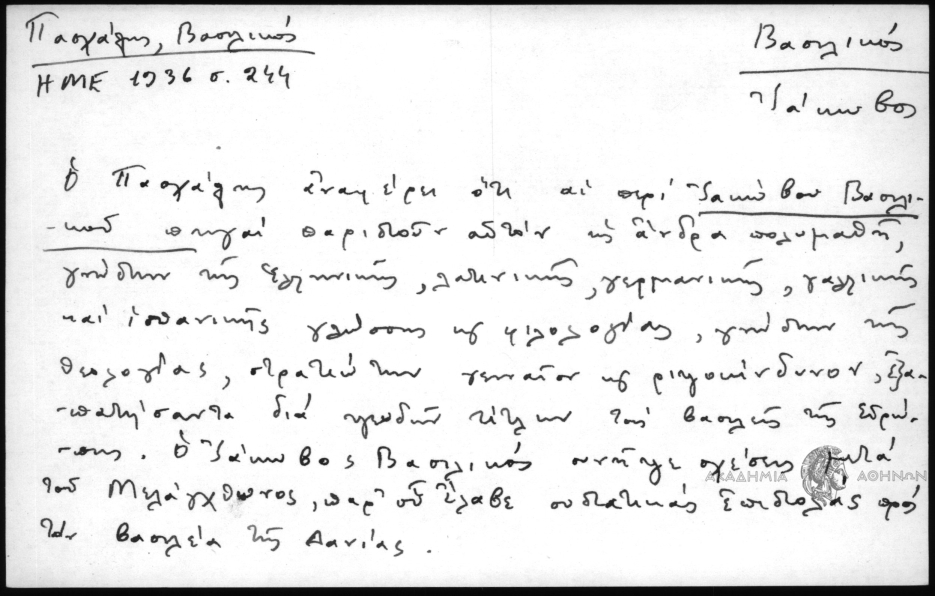 Πασχάλης, Βασιλικός
ΗΜΕ 1936 σ. 244
Βασιλικός
Ἰάκωβος
Ὁ Πασχάλης ἀναφέρει ὅτι αἱ περί Ἰακώβου Βασιλι-
-κοῦ πηγαί παριστοῦν αὐτόν ὡς ἄνδρα πολυμαθῆ,
γνώστην τῆς ἑλληνικῆς, λατινικῆς, γερμανικῆς, γαλλικῆς
καί ἱσπανικῆς γλώσσης καί φιλολογίας, γνώστην τῆς
θεολογίας, στρατιώτην γενναῖον καί ριψοκίνδυνον, ἐξα-
-πατήσαντα διά ψευδῶν τίτλων τούς βασιλεῖς τῆς Εὐρώ-
-πης. Ὁ Ἰάκωβος Βασιλικός συνῆψε σχέσεις μετά
τοῦ Μελάγχθωνος, παρ' οὗ ἔλαβε συστατικάς ἐπιστολάς πρός
τόν βασιλέα τῆς Δανίας.
ΑΚΑΔΗΜΙΑ ΑΘΗΝΩΝ